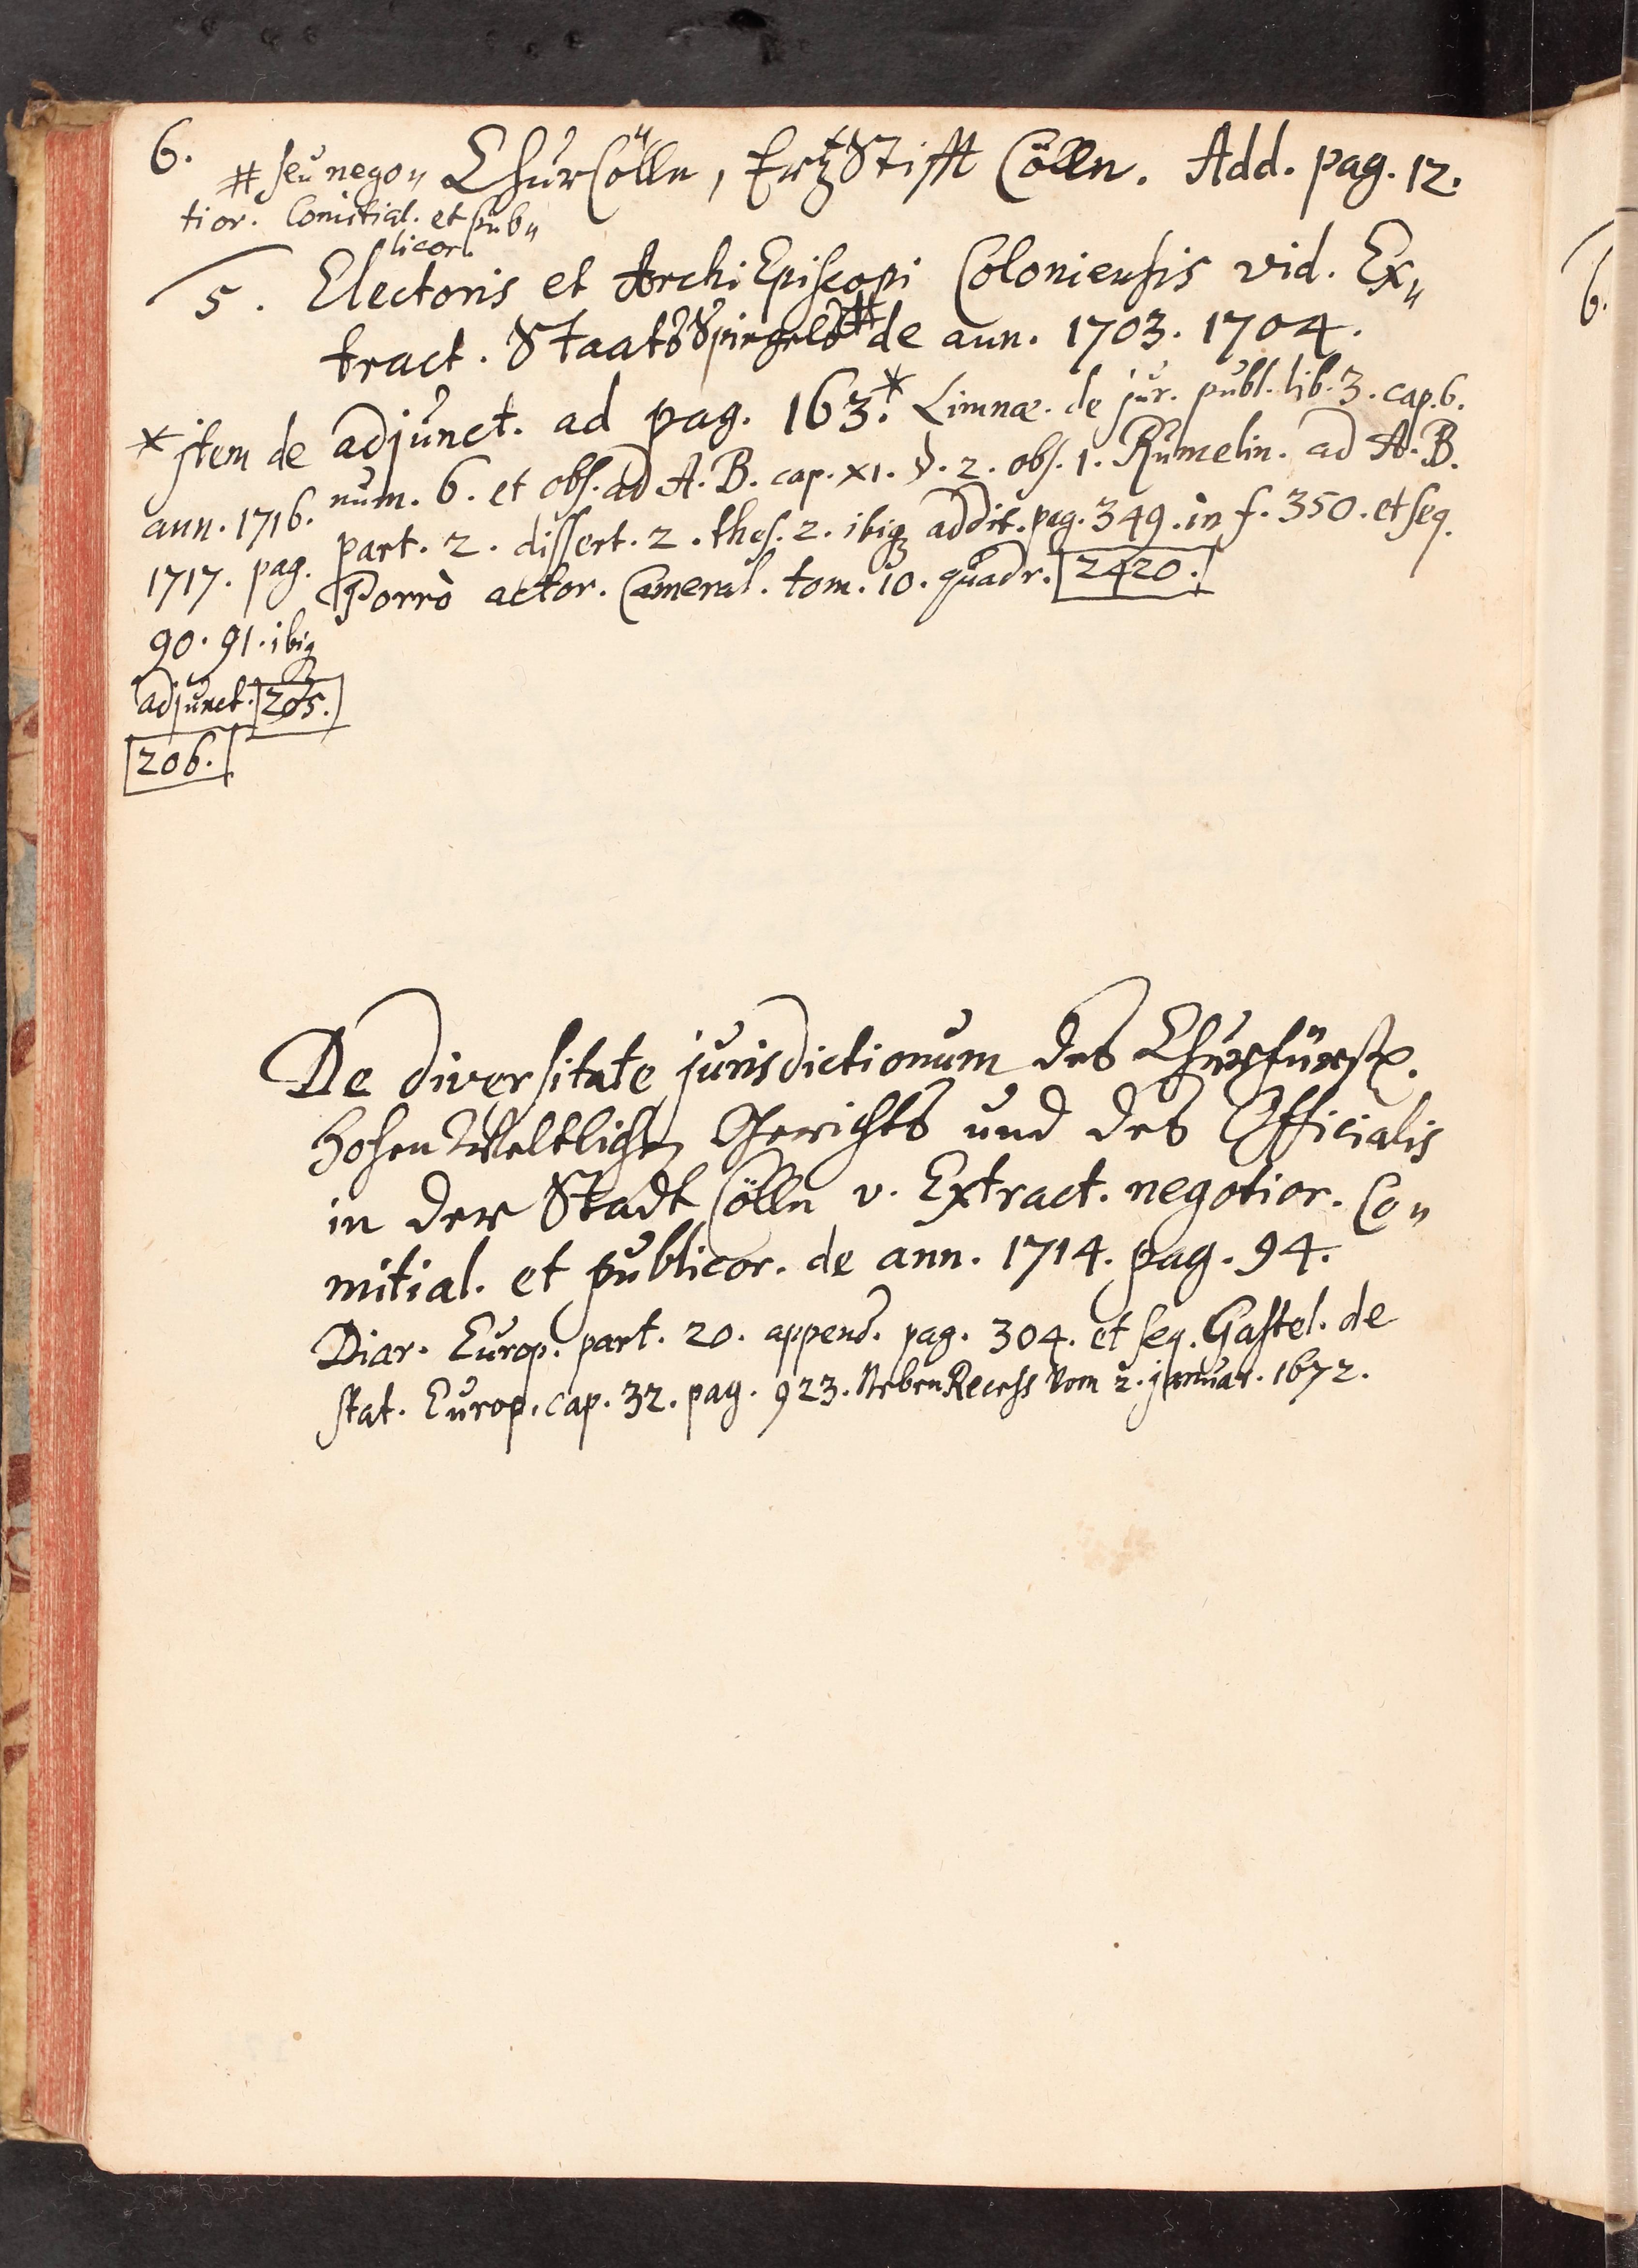 6.
# seu nego〃
tior. Comitial. et pub〃
licor.
ChurCölln, ErtzStifft Cölln. Add. pag. 12.
5. Electoris et ArchiEpiscopi Coloniensis vid. Ex〃
tract. StaatsSpiegels # de ann. 1703. 1704.
adjunct. ad pag. 163.* Limnæ. de jur. publ. lib. 3. cap. 6.
num. 6. et obs. ad A. B. cap. XI. §. 2. obs. 1. Rumelin. ad A. B.
part. 2. dissert. 2. thes. 2. ibiq3 addit. pag. 349. in f. 350. et seq.
Porrò actor. Cameral. tom. 10. quadr. 2420.
* jtem de
ann. 1716.
1717. pag.
90. 91. ibiq3
adjunct. 205.
206.
De diversitate jurisdictionum des Churfürstl.
Hohen Weltlichen Gerichts und des Officialis
in der Stadt Cölln v. Extract. negotior. Co〃
mitial. et publicor. de ann. 1714. pag. 94.
Diar. Europ. part. 20. append. pag. 304. et seq. Gastel. de
stat. Europ. cap. 32. pag. 923. NebenRecess vom 2. januar. 1672.
6.